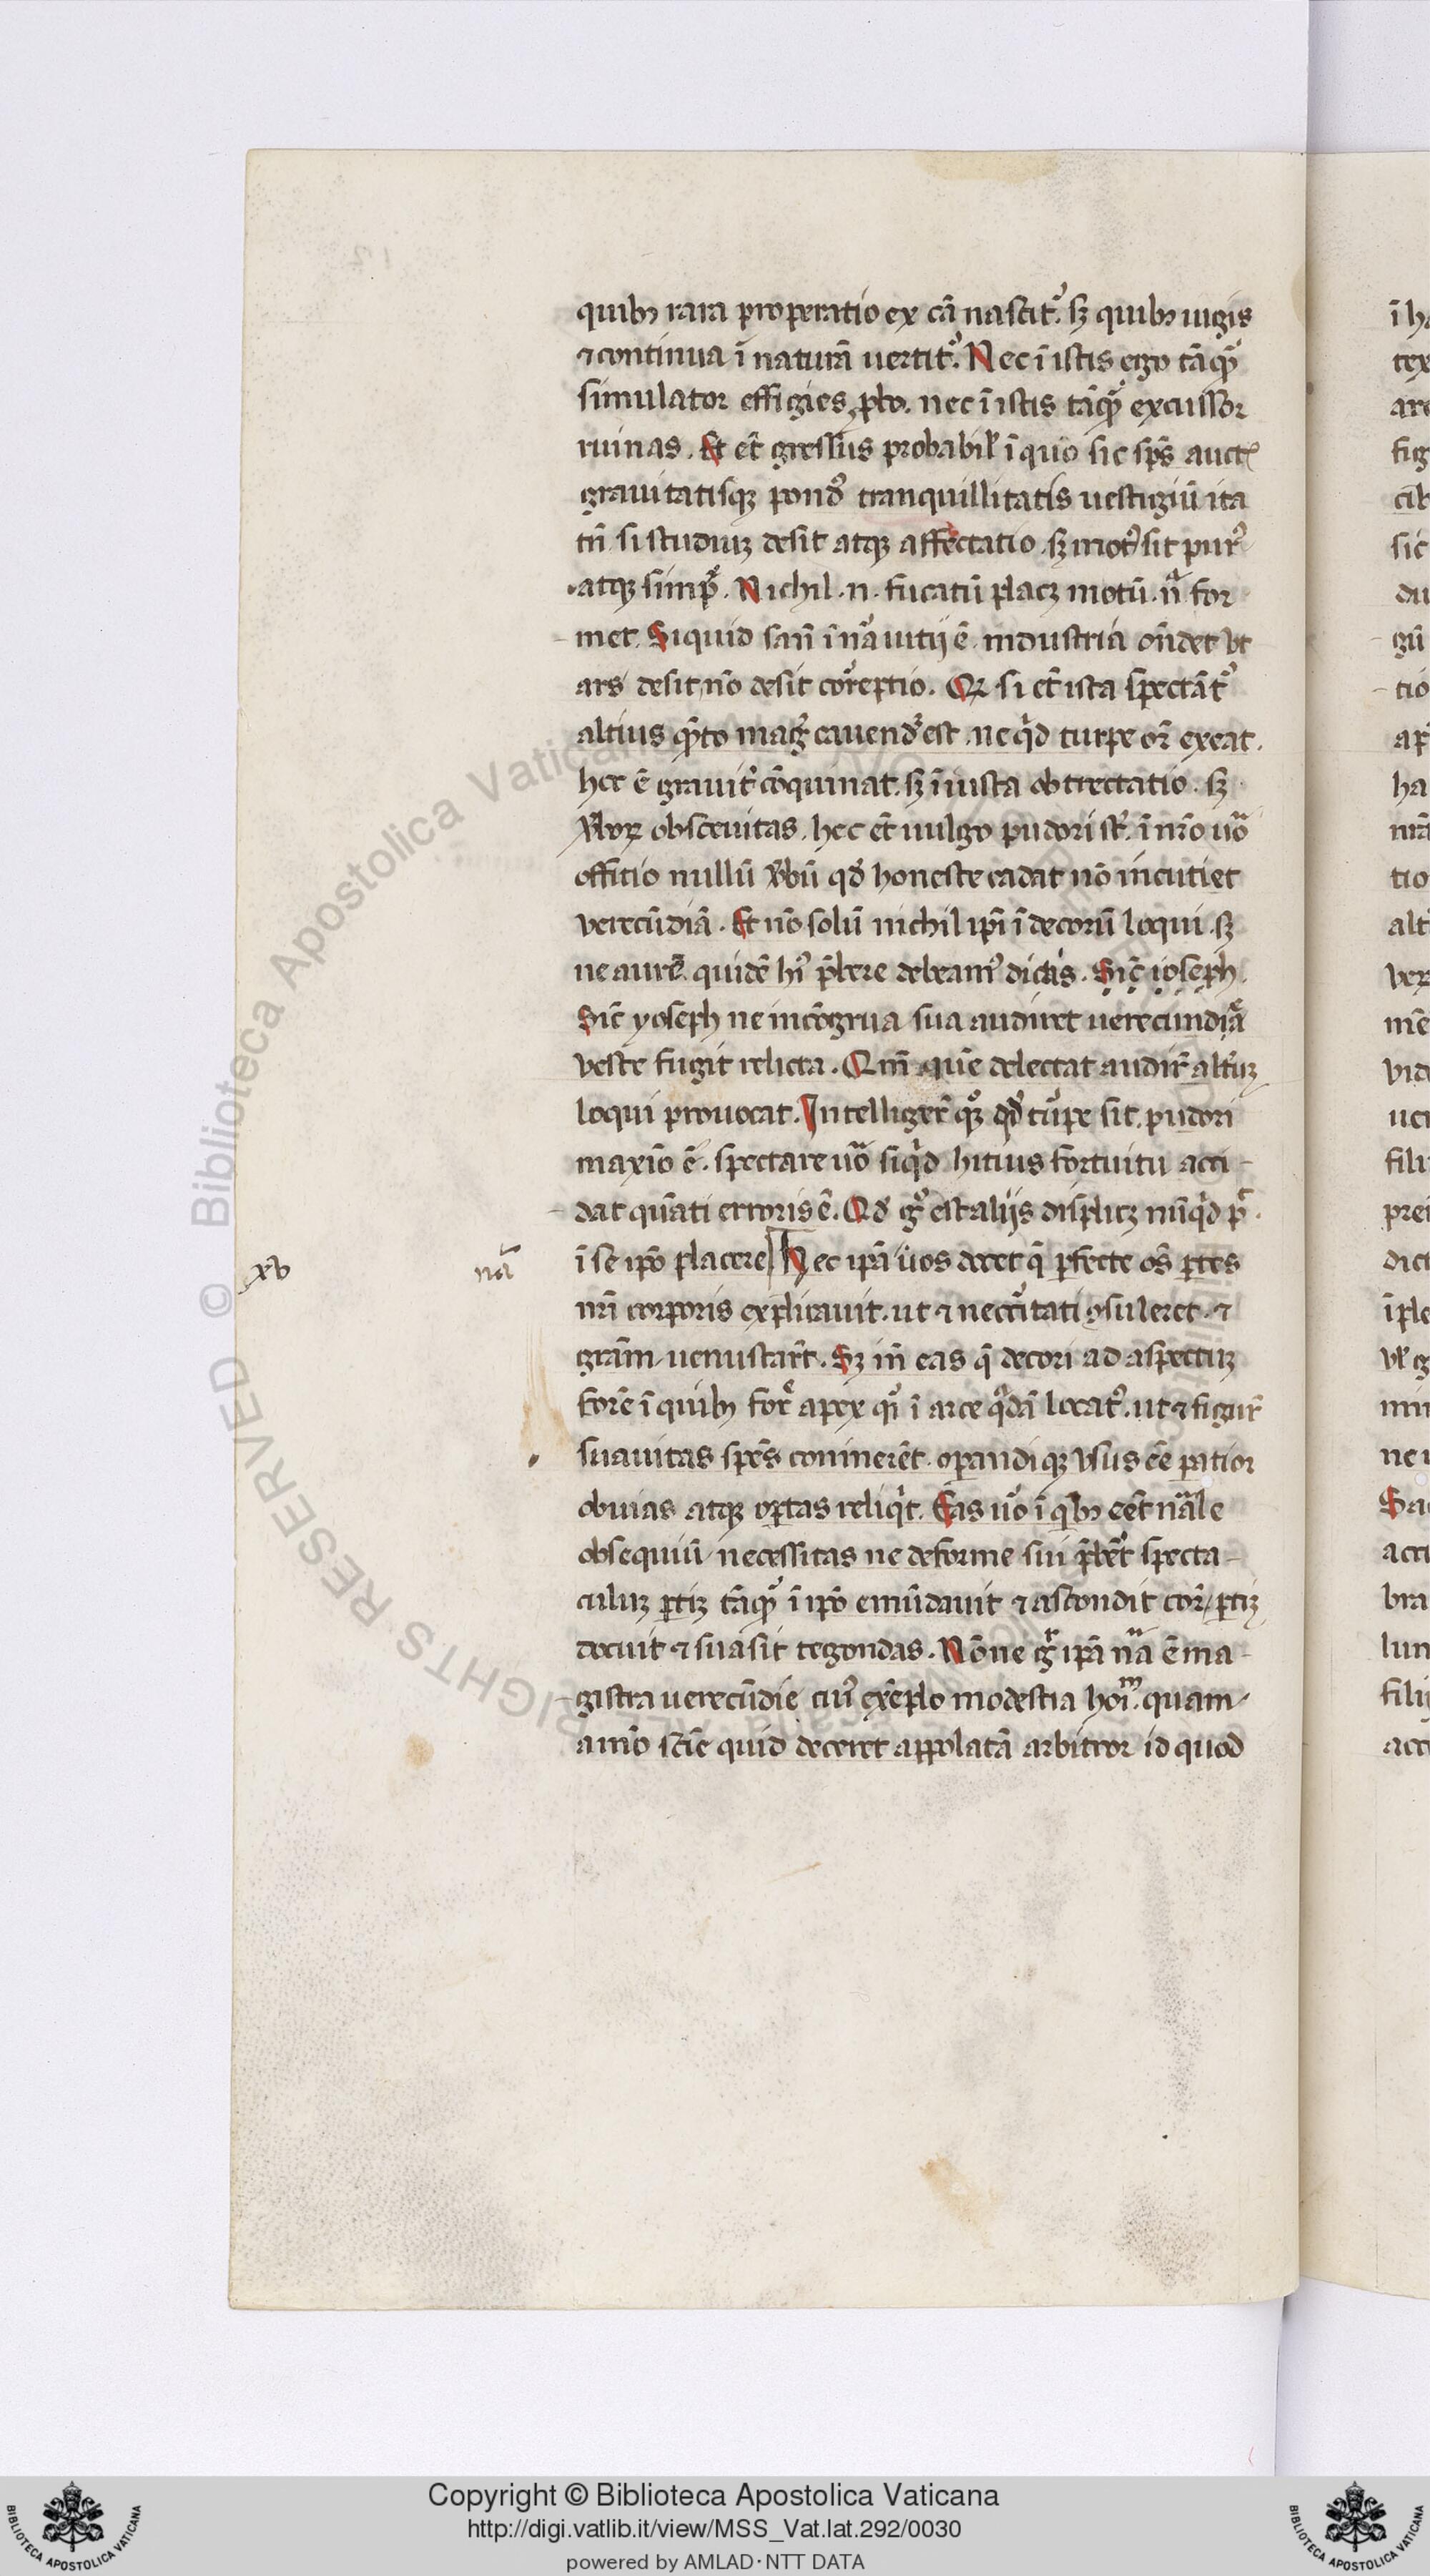 quibꝫ rara properatio ex cā nascit᷑. sꝫ quibꝫ iugis
⁊ continua ī naturā uertit᷑. Nec ī istis ergo tāqꝫ
simulator effigies ꝓbo. nec ī istis tāqꝫ excussor
ruinas. Et et̄ gressus probabil̕ ī quo sic sp̄s auct̕
grauitatisqꝫ pond᷑ tranquillitatis uestigiū ita
tn̄ si studiuꝫ desit atqꝫ affectatio. sꝫ mot᷑ sit pur᷑
atqꝫ simp̄. Nichil .n. fucatū placꝫ motū. n̄ for
met. Siquid san̄ ī nā uitij ē industria on̄det vt
ars desit nō desit cor̄eptio. Qꝫ si et̄ ista spectāt᷑
altius qꝫto mag̕ cauend᷑ est. ne qͥd turpe or̄ exeat.
hec ē grauit̕ cōquinat. sꝫ īiusta obtrectatio. sꝫ
ꝟboꝝ obscenitas. hec et̄ uulgo pudori st̄. ī nr̄o uō
offitio nullū ꝟbū qd̕ honeste cadat nō incutiet
verecūdiā. Et nō solū nichil ip̄i īdecorū loqui. sꝫ
ne aurē quidē hi᷑ p̄bere debeam᷑ dictis. Sic̄ ioseph.
Sic̄ yoseph ne incōgrua sua audiret uerecundiā
veste fugit relicta. Qm̄ quē delectat audir̄ alt̕uꝫ
loqui prouocat. Intelliger̄ qꝫ qd̕ tūpe sit. pudori
maxīo ē. spectare uō siqͥd hitius fortuitu acci
dat quāti erroris ē. Qd̕ g̕ est alijs displicꝫ nūqͥd p̄
ī se ipō placere Nec ipā uos docet q̄ ꝑfecte os̄ ꝑtes
xv nā
nr̄i corporis explicauit. ut ⁊ necc̄itati ꝯsuleret. ⁊
grām uenustar̄t. Sꝫ in̄ eas q̄ decori ad aspectuꝫ
forē ī quibꝫ for̄ apex q̄i ī arce qͣdā locat᷑. ut ⁊ figur̄
suauitas sp̄es eminerēt. oꝑandiqꝫ vsus eē patior
obuias atqꝫ aꝑtas reliqͥt. Eas uō ī qͥbꝫ eēt nāle
obsequiū necessitas ne deforme sui p̄bēt specta
culuꝫ ꝑtiꝫ tāqꝫ ī ipō emūdauit ⁊ ascondit cor̄ ꝑtiꝫ
docuit ⁊ suasit tegondas. Nōne g̕ ipā nā ē ma
gistra uerecūdie cui᷑ exēplo modestia hoīm. quam
amō scīe quid deceret appolatā arbitror id quod
Copyright © Biblioteca Apostolica Vaticana
http://digi.vatlib.it/view/MSS_Vat.lat.292/0030
powered by AMLAD·NTT DATA